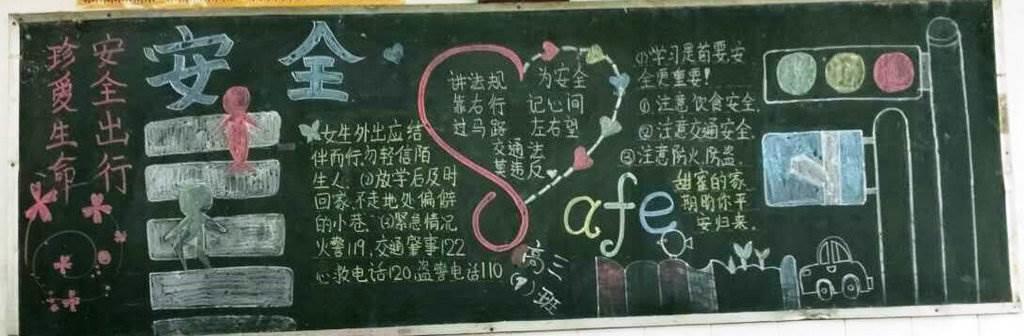 安全出行
珍爱生命
安全
女生外出应结
伴而行勿轻信陌
生人.(2)放学后及时
回家.不走地处偏僻
的小巷.(3)紧急情况
火警119,交通肇事122
急救电话120,盗警电话110
讲法规
靠右行
过马路
为安全
记心间
左右望
交通法
莫违反
Safe
高三
(9)班
①学习是首要,安
全更重要!
①注意饮食安全.
②注意交通安全.
③注意防火,防盗.
甜蜜的家
期盼你平
安归来.